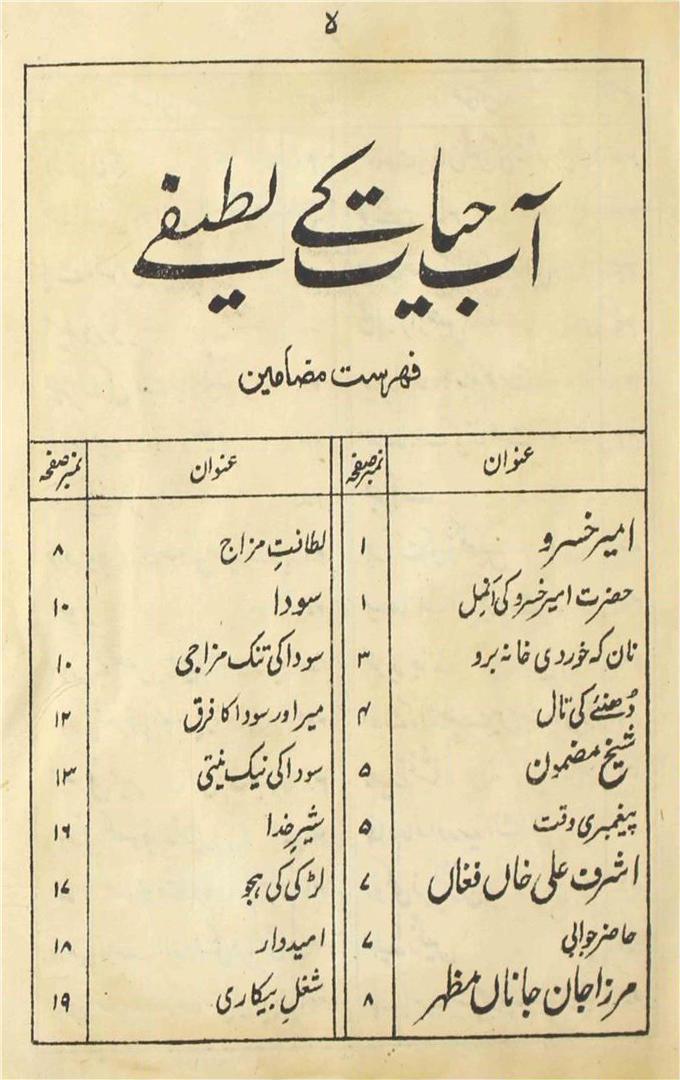 لا
آبِ حیات کے لطیفے
فہرست مضامین
عنوان نمبر صفحہ عنوان نمبر صفحہ
امیر خسرو ۱
حضرت امیر خسرو کی اَنمِل ۱
نان کہ خوردی خانہ برو ۳
دُھنئے کی تال ۴
شیخ مضمون ۵
پیغمبری وقت ۵
اشرف علی خاں فغاں ۷
حاضر جوابی ۷
مرزا جان جاناں مظہر ۸
لطافتِ مزاج ۸
سودا ۱۰
سودا کی تنک مزاجی ۱۰
میر اور سودا کا فرق ۱۲
سودا کی نیک نیتی ۱۳
شیرِ خدا ۱۶
لڑکی کی ہجو ۱۷
امیدوار ۱۸
شغلِ بیکاری ۱۹